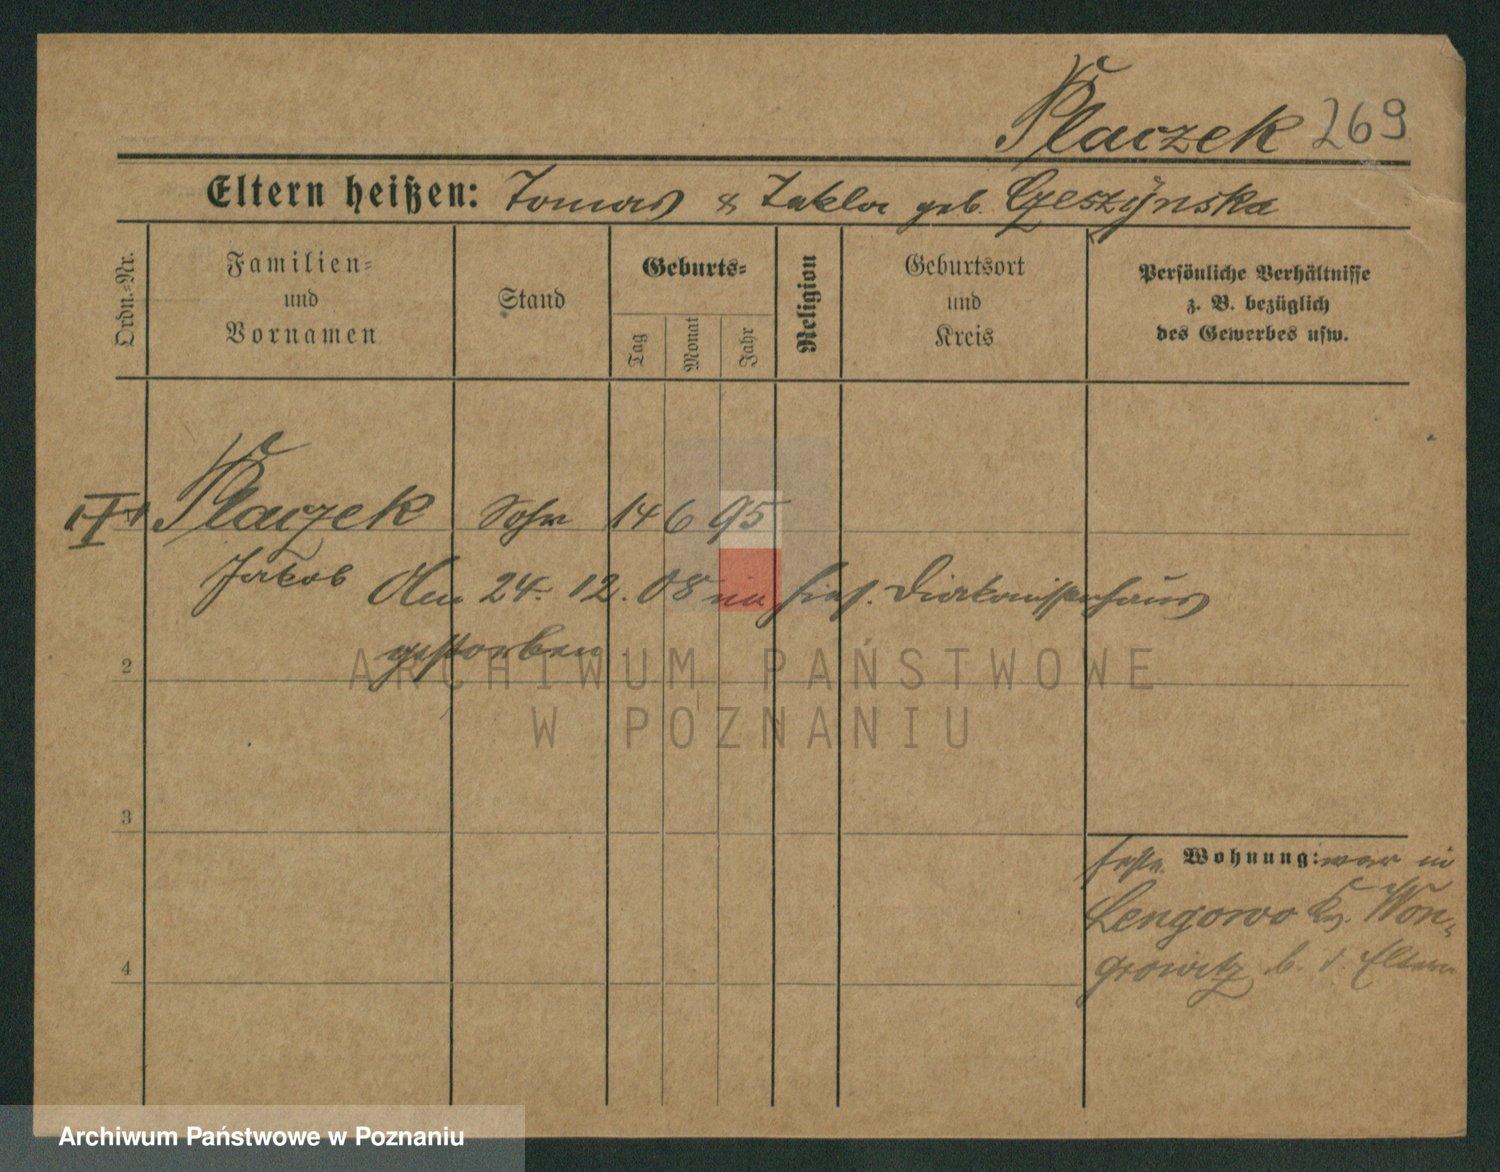 Placzek 269
Eltern heißen: Tomas & Tekla geb. Geszÿnska
Ordn.-Nr.
Familien-
und
Vornamen
Stand
Geburts-
Tag
Monat
Jahr
Religion
Geburtsort
und
Kreis
Persönliche Verhältnisse
z. B. bezüglich
des Gewerbes usw.
Placzek Sohn 14 6 95
Jakob Am 24. 12. 08 im hies. Diakonissenhaus
gestorben
2
3
4
feste Wohnung: war in
Lengowo Kr. Won-
growitz b. d. Eltern
ARCHIWUM PAŃSTWOWE
W POZNANIU
Archiwum Państwowe w Poznaniu